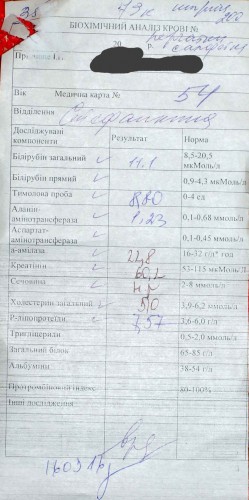 БІОХІМІЧНИЙ АНАЛІЗ КРОВІ №
20 р.
Вік Медична карта № 54
Відділення
Досліджувані компоненти Результат Норма
Білірубін загальний 11,1 8,5-20,5 мкМоль/л
Білірубін прямий 0,9-4,3 мкМоль/л
Тимолова проба 8,80 0-4 од
Аланін-амінотрансфераза 1,23 0,1-0,68 ммоль/л
Аспартат-амінотрансфераза 0,1-0,45 ммоль/л
α-амілаза 21,8 16-32 г/л* год
Креатінін 60,2 53-115 мкМоль/л
Сечовина 2-8 ммоль/л
Холестерин загальний 5,0 3,9-6,2 ммоль/л
Р-ліпопротеїди 3,57 3,6-6,0 г/л
Тригліцериди 0,5-2,0 ммоль/л
Загальний білок 65-85 г/л
Альбуміни 38-54 г/л
Протромбіновий індекс 80-100%
Інші дослідження